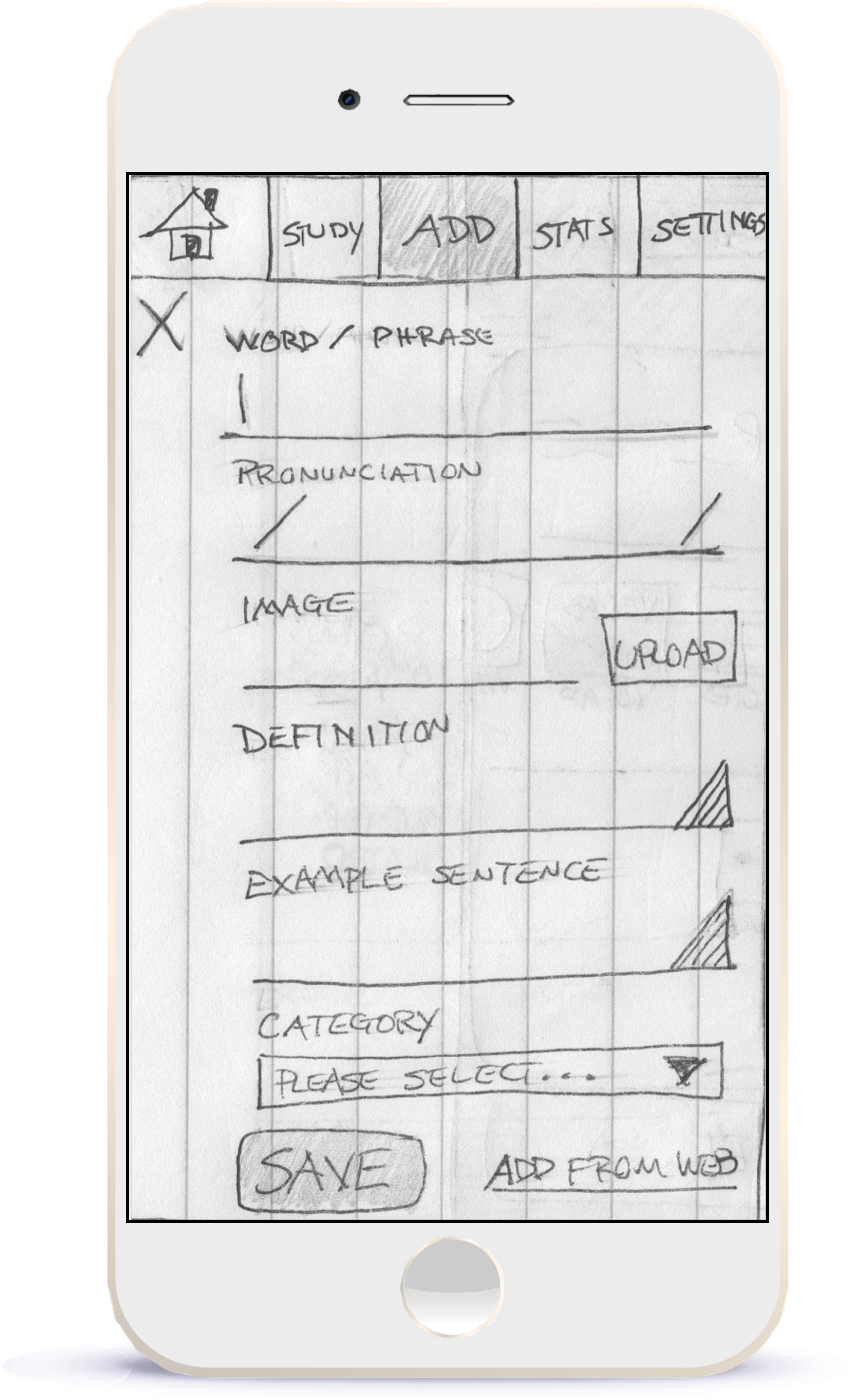 STUDY ADD STATS SETTINGS
X
WORD / PHRASE
PRONUNCIATION
/ /
IMAGE
UPLOAD
DEFINITION
EXAMPLE SENTENCE
CATEGORY
PLEASE SELECT...
SAVE ADD FROM WEB